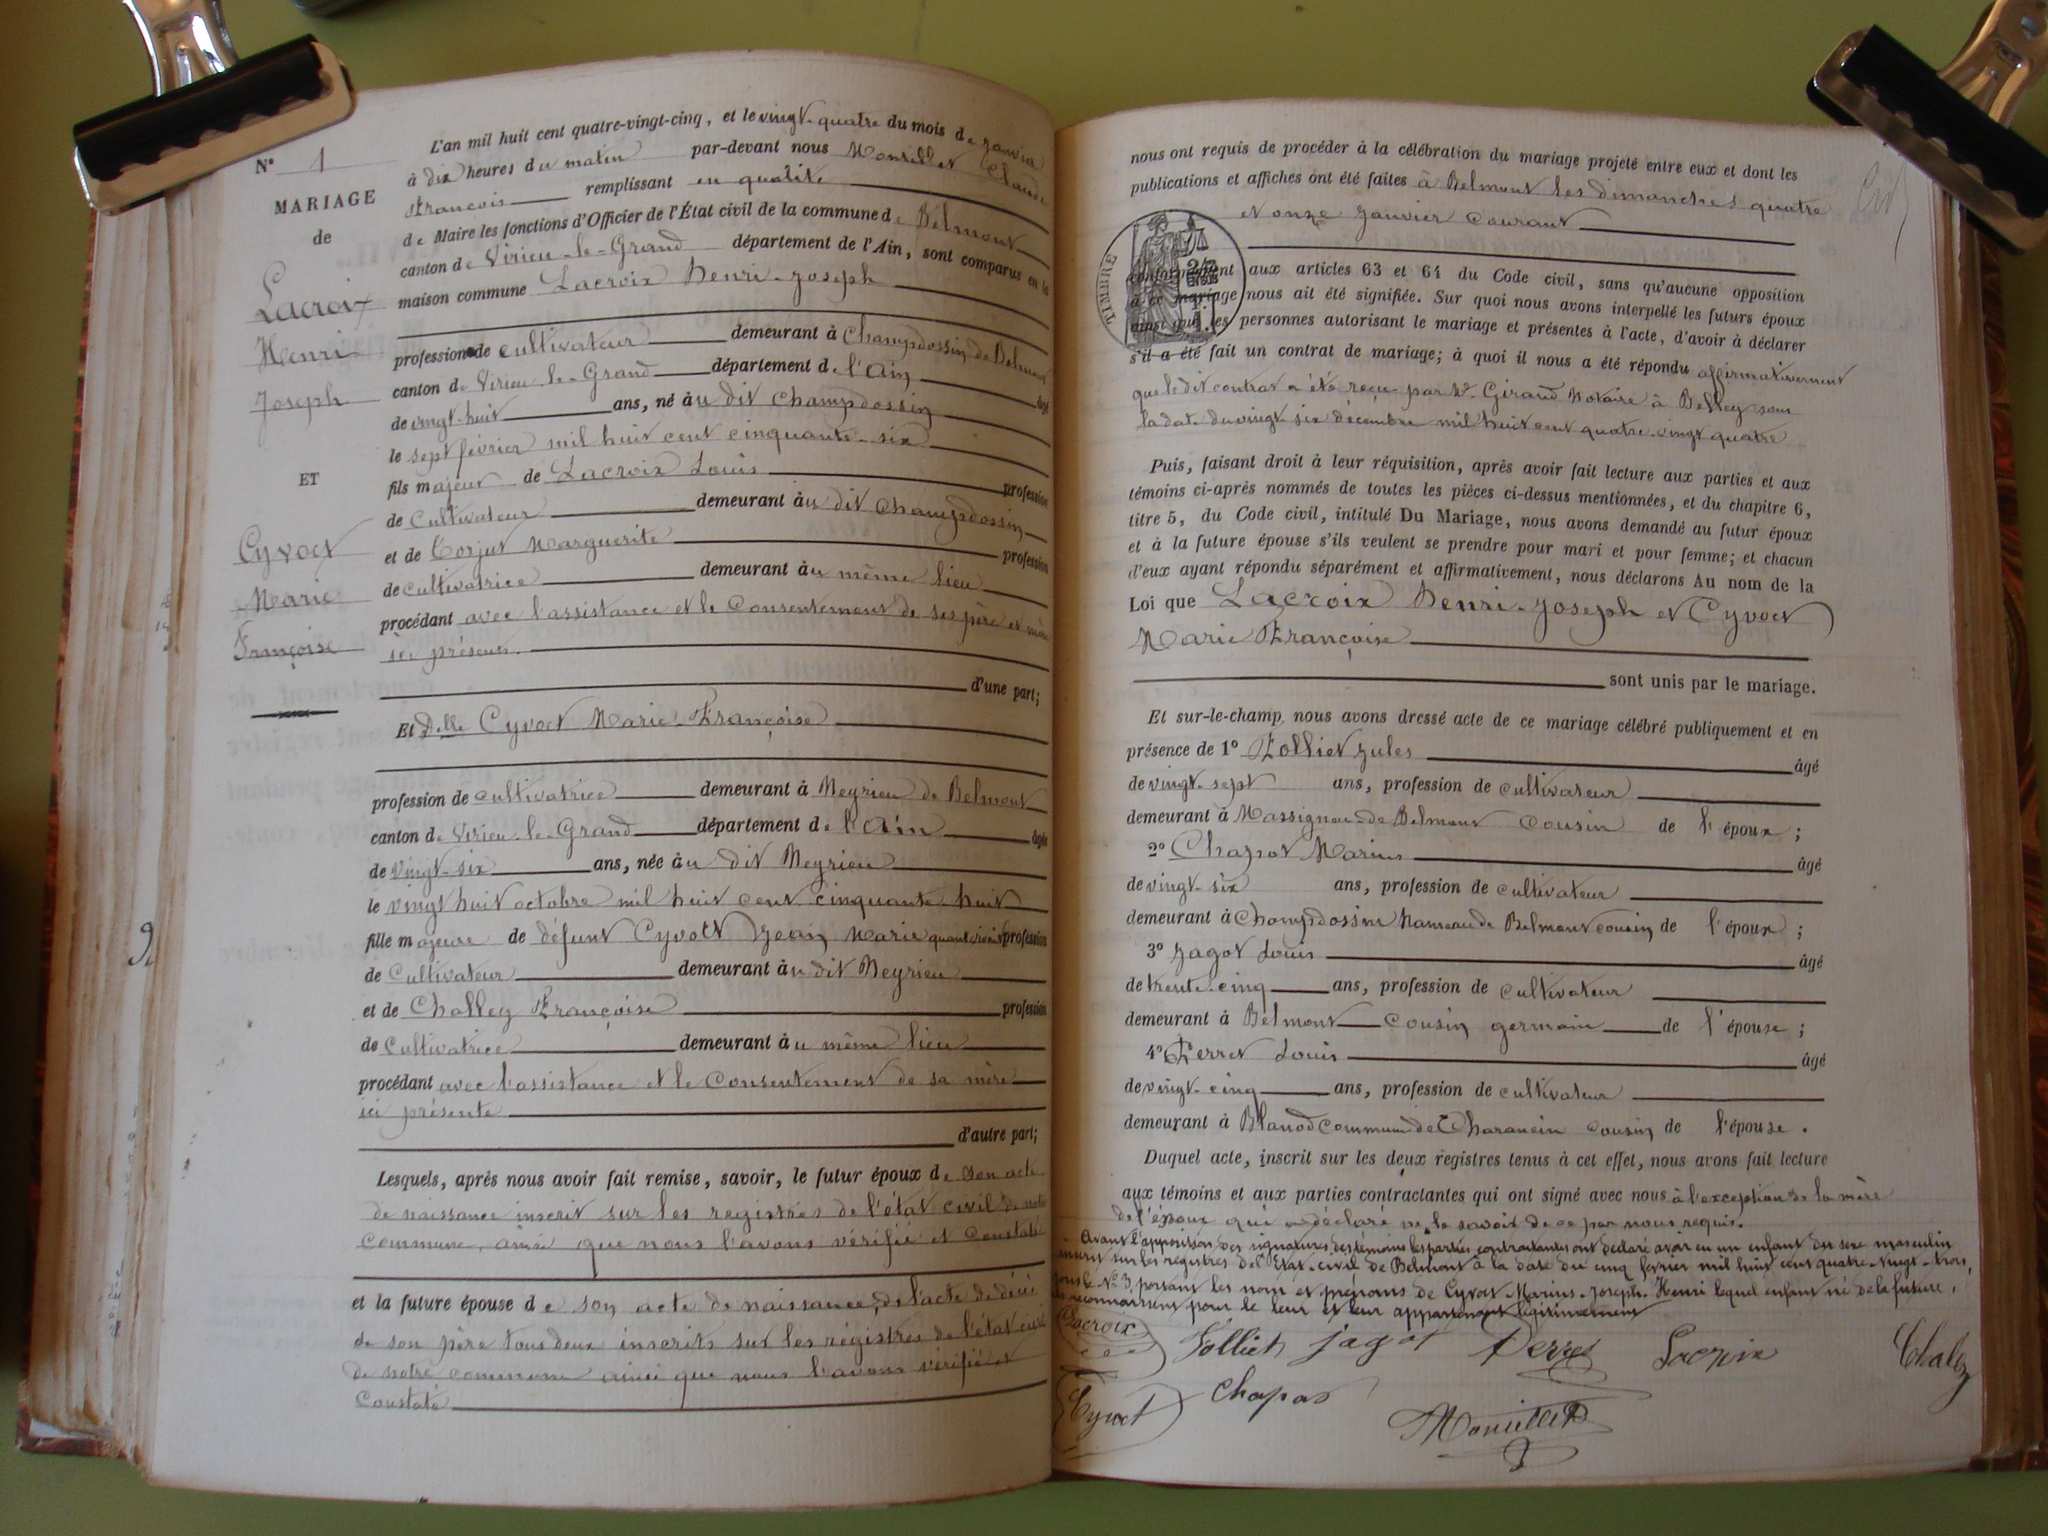 N° 1
MARIAGE
de
Lacroix
Henri
Joseph
ET
Cyvoct
Marie
Françoise
L'an mil huit cent quatre-vingt-cinq, et le vingt-quatre du mois de janvier
à dix heures du matin par-devant nous Monillet Claude
François remplissant en qualité
de Maire les fonctions d'Officier de l'État civil de la commune de Belmont
canton de Virieu-le-Grand département de l'Ain, sont comparus en la
maison commune Lacroix Henri-Joseph
profession de cultivateur demeurant à Champdossin de Belmont
canton de Virieu-le-Grand département de l'Ain âgé
de vingt-huit ans, né àu dit Champdossin
le sept février mil huit cent cinquante-six
fils majeur de Lacroix Louis profession
de Cultivateur demeurant àu dit Champdossin
et de Corjut Marguerite profession
de cultivatrice demeurant àu même lieu
procédant avec l'assistance et le Consentement de ses père et mère
ici présents.
d'une part;
Et Delle Cyvoct Marie-Françoise
profession de cultivatrice demeurant à Meyrieu de Belmont
canton de Virieu-le-Grand département de l'Ain âgée
de vingt-six ans, née àu dit Meyrieu
le vingt huit octobre mil huit cent cinquante-huit
fille majeure de défunt Cyvoct Jean Marie quant vivait profession
de Cultivateur demeurant àu dit Meyrieu
et de Challey Françoise profession
de Cultivatrice demeurant àu même lieu
procédant avec l'assistance et le Consentement de sa mère
ici présente
d'autre part;
Lesquels, après nous avoir fait remise, savoir, le futur époux de son acte
de naissance inscrit sur les registres de l'état civil de notre
commune, ainsi que nous l'avons vérifié et constaté
et la future épouse de son acte de naissance, de l'acte de décès
de son père tous deux inscrits sur les régistres de l'état civil
de notre commune ainsi que nous l'avons vérifié et
Constaté
nous ont requis de procéder à la célébration du mariage projeté entre eux et dont les
publications et affiches ont été faites à Belmont les dimanches quatre
et onze janvier courant
TIMBRE
conformément aux articles 63 et 64 du Code civil, sans qu'aucune opposition
à ce mariage nous ait été signifiée. Sur quoi nous avons interpellé les futurs époux
ainsi que les personnes autorisant le mariage et présentes à l'acte, d'avoir à déclarer
s'il a été fait un contrat de mariage; à quoi il nous a été répondu affirmativement
que le dit contrat a été reçu par Me Giraud Notaire à Belley sous
la date du vingt six décembre mil huit cent quatre-vingt quatre
Puis, faisant droit à leur réquisition, après avoir fait lecture aux parties et aux
témoins ci-après nommés de toutes les pièces ci-dessus mentionnées, et du chapitre 6,
titre 5, du Code civil, intitulé Du Mariage, nous avons demandé au futur époux
et à la future épouse s'ils veulent se prendre pour mari et pour femme; et chacun
d'eux ayant répondu séparément et affirmativement, nous déclarons Au nom de la
Loi que Lacroix Henri-Joseph et Cyvoct
Marie Françoise
sont unis par le mariage.
Et sur-le-champ, nous avons dressé acte de ce mariage célébré publiquement et en
présence de 1° Folliet Jules âgé
de vingt-sept ans, profession de cultivateur
demeurant à Massigneu-de Belmont cousin de l'époux;
2° Chapot Marius âgé
de vingt-six ans, profession de cultivateur
demeurant à Champdossin hameau de Belmont cousin de l'époux;
3° Jagot Louis âgé
de trente-cinq ans, profession de cultivateur
demeurant à Belmont cousin germain de l'épouse;
4° Perret Louis âgé
de vingt-cinq ans, profession de cultivateur
demeurant à Blanod commune de Charancin cousin de l'épouse.
Duquel acte, inscrit sur les deux registres tenus à cet effet, nous avons fait lecture
aux témoins et aux parties contractantes qui ont signé avec nous à l'exception de la mère
de l'époux qui a déclaré ne le savoir de ce par nous requis.
Avant l'apposition des signatures des témoins les parties contractantes ont déclaré avoir eu un enfant du sexe masculin
inscrit sur les registres de l'Etat-civil de Belmont à la date du cinq février mil huit cent quatre-vingt-trois,
sous le N° 3, portant les nom et prénoms de Cyvoct Marius-Joseph-Henri lequel enfant né de la future,
reconnaissent pour le leur et leur appartenant légitimement
Lacroix Folliet Jagot Perret Lacroix Chaley
Cyvoct Chapot Monillet